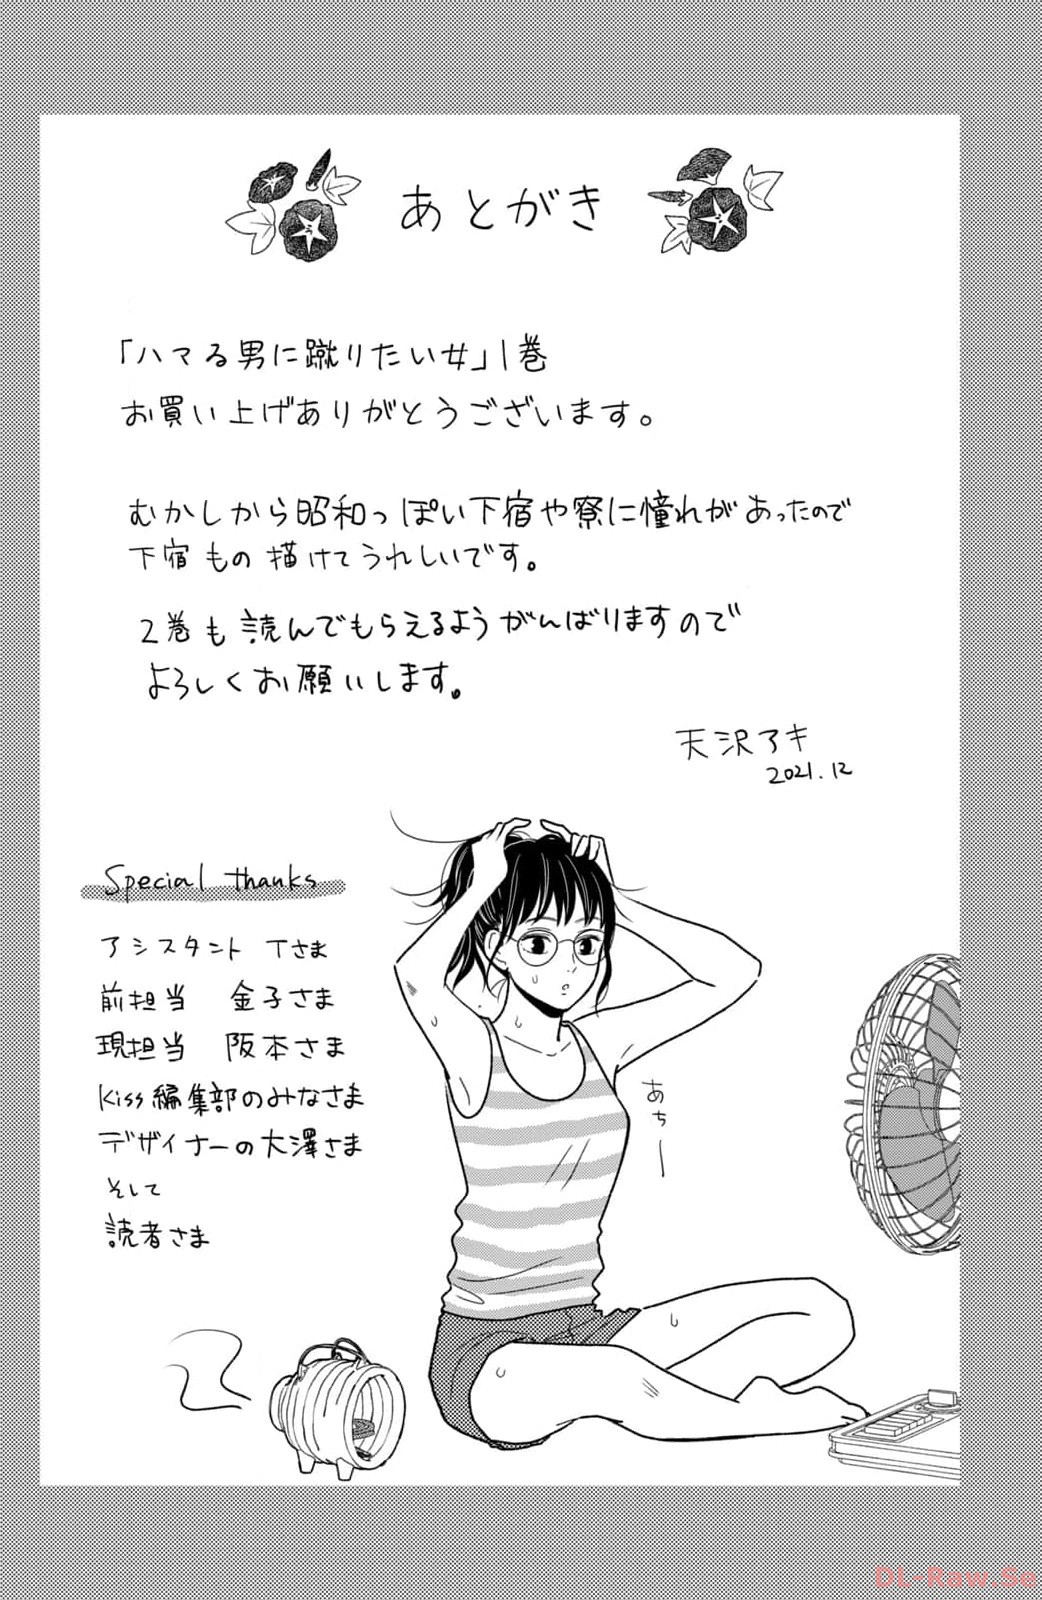 あとがき
「ハマる男に蹴りたい女」1巻
お買い上げありがとうございます。
むかしから昭和っぽい下宿や寮に憧れがあったので
下宿もの描けてうれしいです。
2巻も読んでもらえるようがんばりますので
よろしくお願いします。
天沢アキ
2021.12
Special thanks
アシスタント Tさま
前担当 金子さま
現担当 阪本さま
Kiss編集部のみなさま
デザイナーの大澤さま
そして
読者さま
あちー
DL-Raw.Se